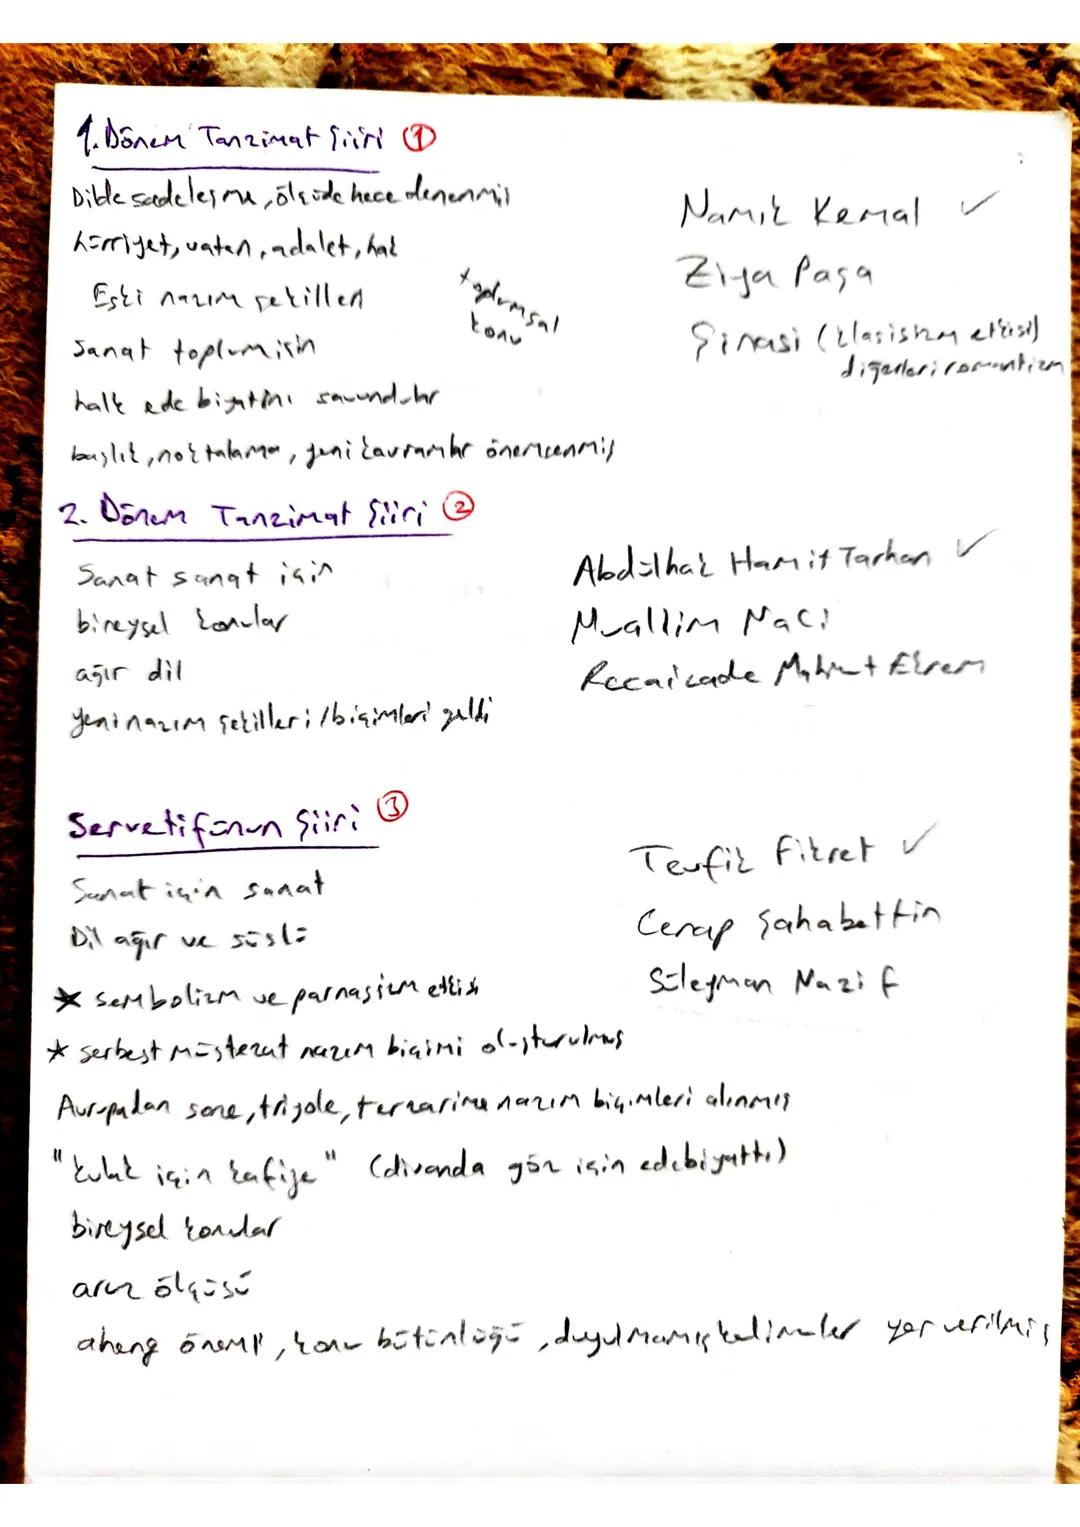 1. Dönem Tanzimat Şiiri ①
Dilde sadeleşme, ölçüde hece denenmiş
hürriyet, vatan, adalet, hak
Eski nazım şekilleri
toplumsal
konu
sanat toplum için
halk edebiyatını savundular
başlık, noktalama, yeni kavramlar önemsenmiş
Namık Kemal ✓
Ziya Paşa
Şinasi (klasisizm etkisi)
diğerleri romantizm
2. Dönem Tanzimat Şiiri ②
Sanat sanat için
bireysel konular
ağır dil
yeni nazım şekilleri/biçimleri geldi
Abdülhak Hamit Tarhan ✓
Muallim Naci
Recaizade Mahmut Ekrem
Servetifünun Şiiri ③
Sanat için sanat
Dil ağır ve süslü
* sembolizm ve parnasizm etkisi
* serbest müstezat nazım biçimi oluşturulmuş
Avrupadan sone, triyole, terzarima nazım biçimleri alınmış
"kulak için kafiye" (divanda göz için edebiyattı)
bireysel konular
aruz ölçüsü
aheng önemli, konu bütünlüğü, duyulmamış kelimeler yer verilmiş
Tevfik Fikret ✓
Cenap Şahabettin
Süleyman Nazif